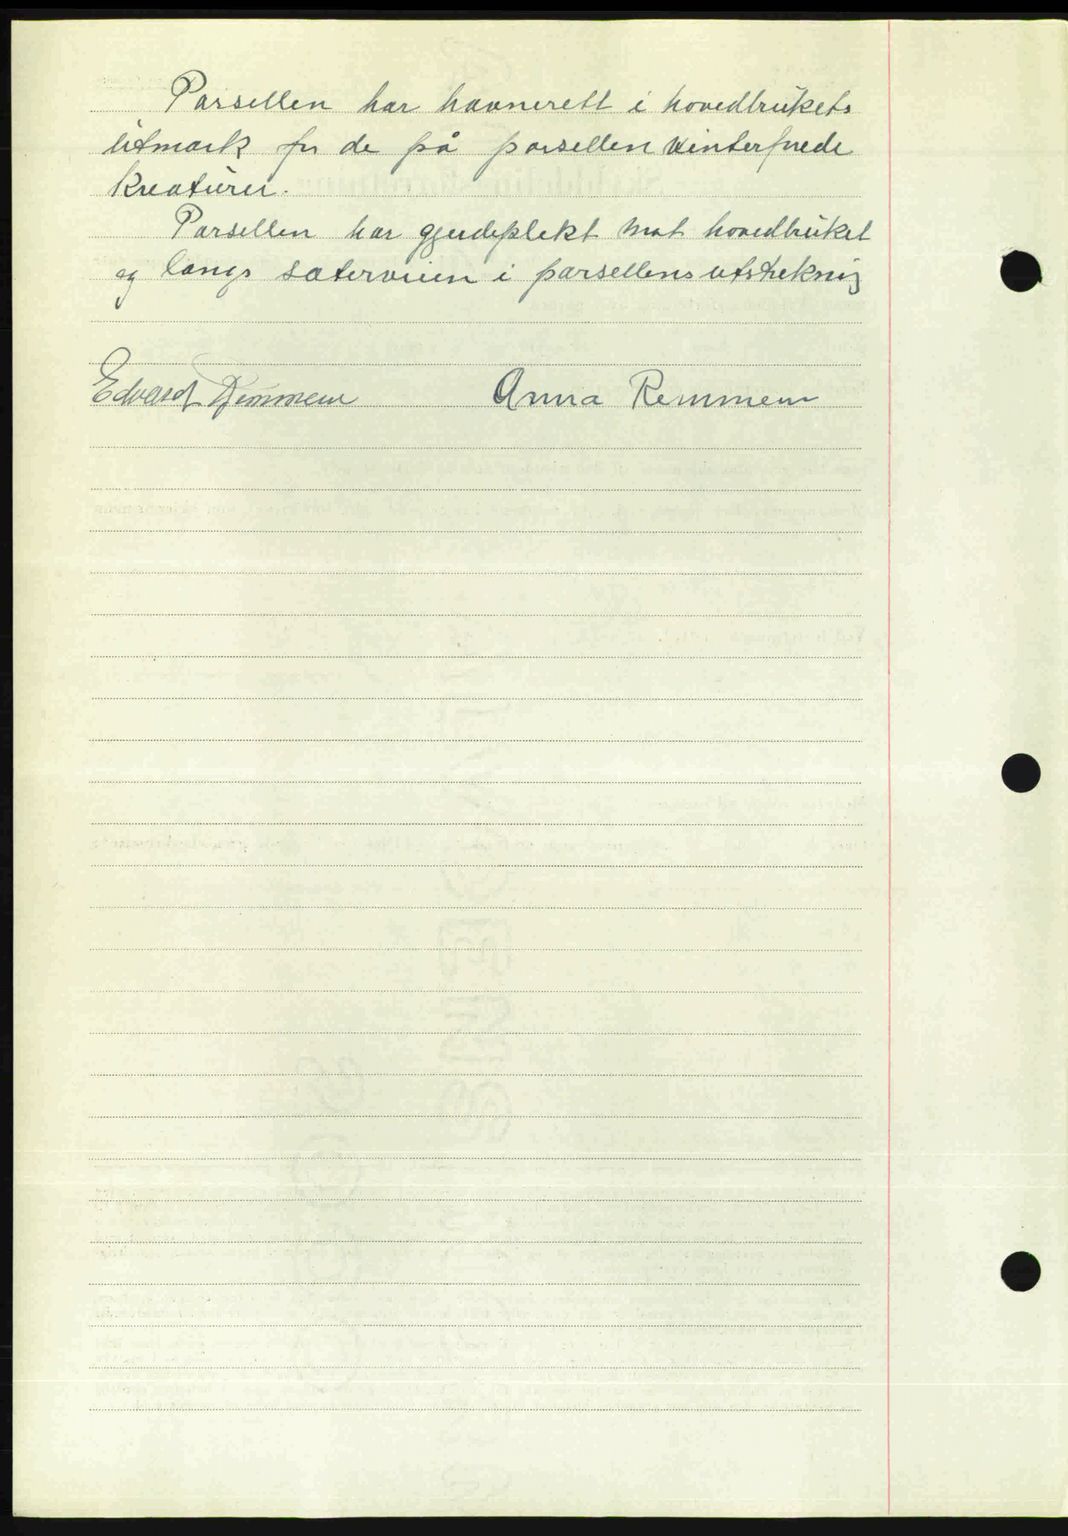 Parsellen har havnerett i hovedbrukets
utmark for de på parsellen vinterfôrede
kreaturer.
Parsellen har gjerdeplikt mot hovedbruket
og langs sæterveien i parsellens utstrekning
Edvard Remmem Anna Remmem